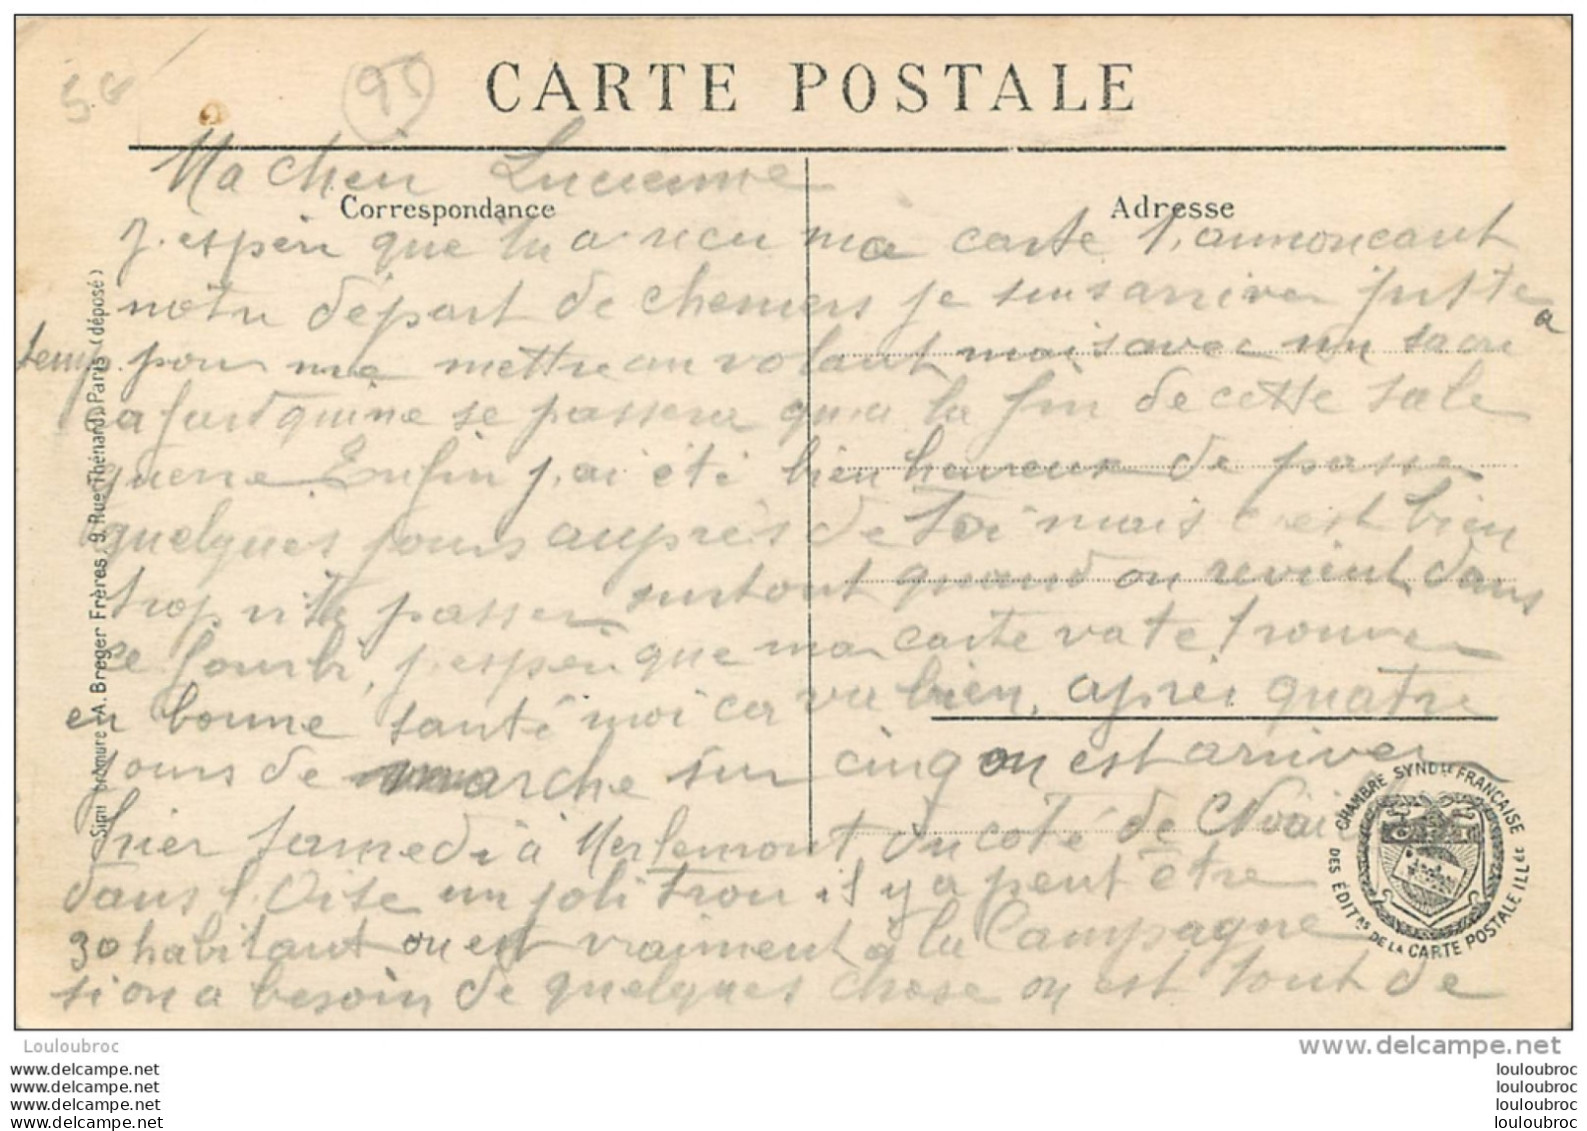 5G
95
CARTE POSTALE
Ma cheri Lucienne
Correspondance
Adresse
J. espèri que tu a recu ma carte t'annoncant
notre départ de chemers je suis arriver juste a
temp pour me mettre au volant mais avec un sacre
cafard qui ne se passera qu,a la fin de cette sale
guerre Enfin j,ai été bien heureux de passe
quelques jours auprès de Toi mais c'est bien
trop vite passer surtout quand on revient dans
ce fourbi, j,esperi que ma carte va te trouver
en bonne santé moi ca va bien, après quatre
jours de marche sur cinq on est arriver
hier samedi à Merlemont du coté de Noail
dans l,Oise un joli trou il y a peut être
30 habitant on est vraiment à la Campagne
si on a besoin de quelques chose on est tout de
Simi bromure - A. Breger Frères, 9, Rue Thénard, Paris (déposé)
CHAMBRE SYND.LE FRANÇAISE
DES ÉDIT.RS DE LA CARTE POSTALE ILL.ÉE
Louloubroc
www.delcampe.net
www.delcampe.net
www.delcampe.net
www.delcampe.net
www.delcampe.net
louloubroc
louloubroc
louloubroc
louloubroc